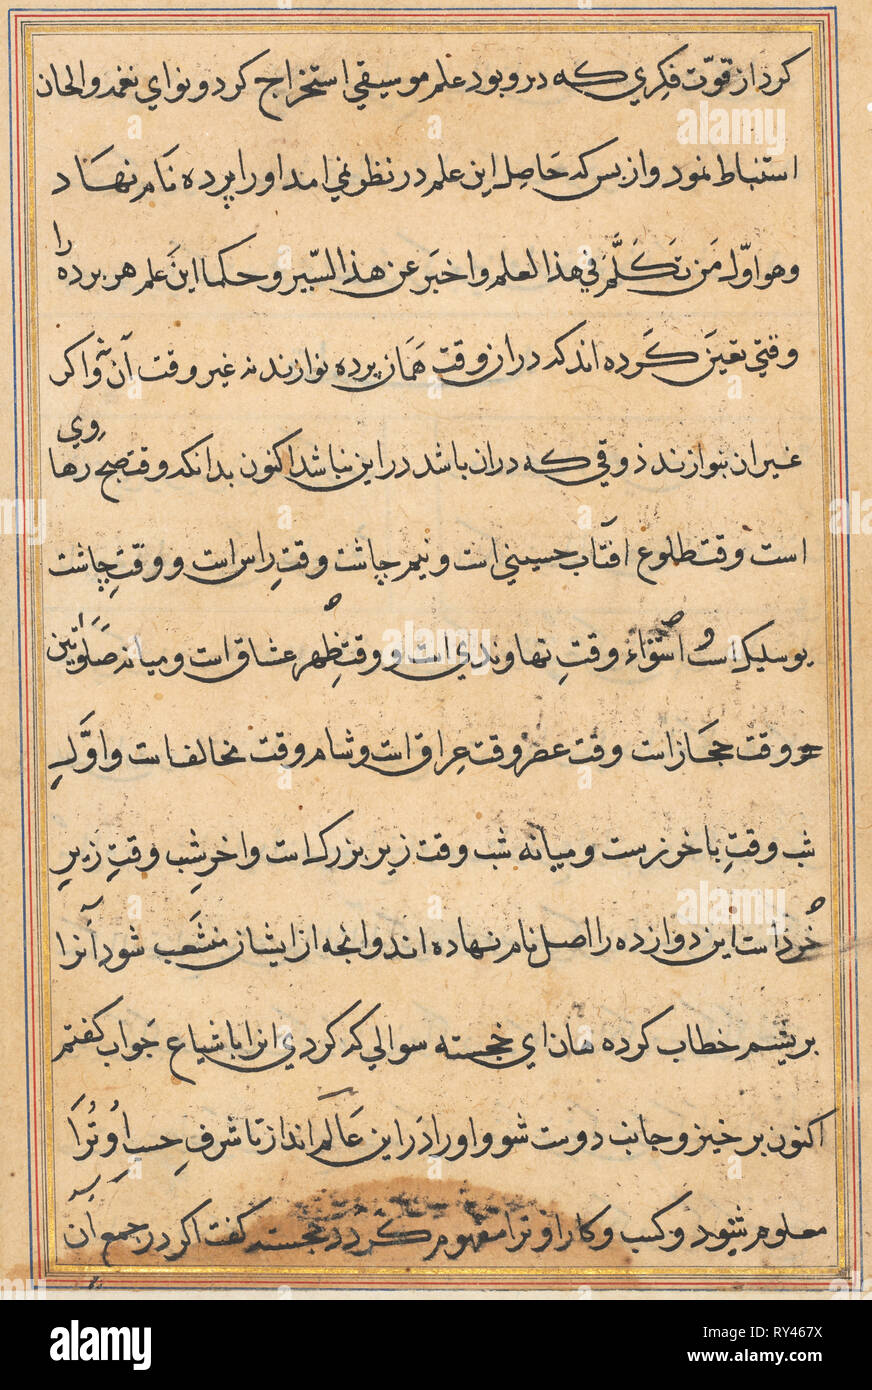 کرد از قوّت فکری که درو بود علم موسیقی استخراج کرد و نوای نغمه و الحان
استنباط نمود و از بس که حَاصِل این علم در نظر نمی امد او را پرده نَام نهاد
و هو اوّل مَن تَکَلَّمَ فی هذا العلم و اخبَر عن هذا السّیر و حکما اینَ علم هر پرده را
وقتی تعین کَرده اند که دران وقت هَمان پرده نوازند نه غیر وقت آن و اکر
غیر ان بنوازند ذوقی که دران باشد در این نباشد اکنون بدانکه وقت صبح رهاوی
است وقت طلوع افتاب حسینی است و نیم چاشت وقتِ راس است و وقتِ چاشت
بوسلیک است و استواء وقتِ نهاوندی است و وقت ظهر عشاق است و میانه صَلوتین
وقت حجَاز است وقت عصر وقت عِراق است و شام وقت مخالف است و اوَّلِ
شب وقتِ باخرزست و میانه شب وقت زیر بزرک است و اخرِ شب وقتِ زیرِ
خُرد است این دوازده را اصل نام نهاده اند و انچه از ایشان منشَعب شود آنرا
بریشم خطاب کرده هان ای خجسته سوالی که کردی انرا باشباع جَواب کفتم
اکنون بر خیز و جانب دوست شو و او را دَر این عَالَم انداز تا شرفِ حسب او تُرا
معلوم شود و کسب و کار او ترا مفهوم کردد خجسته کفت اکر در جمع آن
alamy
Image ID: RY467X
www.alamy.com